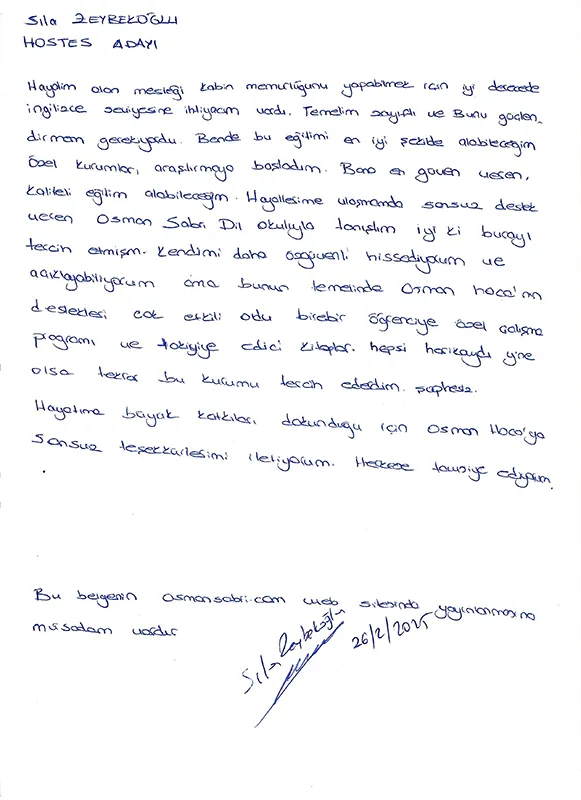 Sıla ZEYBEKOĞLU
HOSTES ADAYI
Hayalim olan mesleği kabin memurluğunu yapabilmek için iyi derecede
ingilizce seviyesine ihtiyacım vardı. Temelim zayıftı ve Bunu güçlen,
dirmem gerekiyordu. Bende bu eğitimi en iyi şekilde alabileceğim
özel kurumları araştırmaya başladım. Bana en güven veren,
kaliteli eğitim alabileceğim. Hayallerime ulaşmamda sonsuz destek
veren Osman Sabri Dil okuluyla tanıştım iyi ki burayı
tercih etmişim. Kendimi daha özgüvenli hissediyorum ve
açıklayabiliyorum ama bunun temelinde Osman hoca'nın
destekleri çok etkili oldu birebir öğrenciye özel çalışma
programı ve takviye edici kitaplar. hepsi harikaydı yine
olsa tekrar bu kurumu tercih ederdim. şüphesiz.
Hayatıma büyük katkıları dokunduğu için Osman Hoca'ya
sonsuz teşekkürlerimi iletiyorum. Herkese tavsiye ediyorum.
Bu belgenin osmansabri.com web sitesinde yayınlanmasına
müsadem vardır
Sıla Zeybekoğlu
26/2/2025